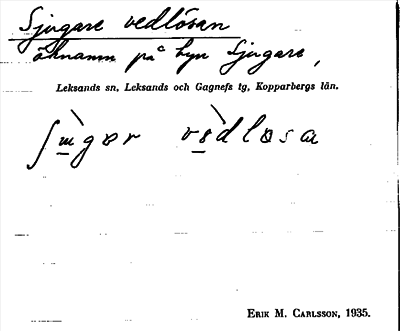 Sjugare vedlösan
öknamn på byn Sjugare,
Leksands sn, Leksands och Gagnefs tg, Kopparbergs län.
ERIK M. CARLSSON, 1935.